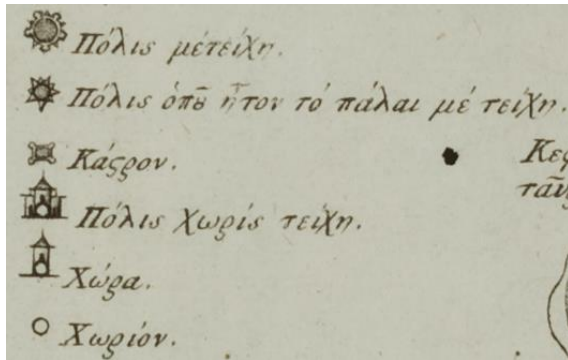 Πόλις μέτείχη.
Πόλις ὁπȣ̃ ἦτον τό πάλαι μέ τείχη.
Κάϛρον.
Πόλις χωρίς τείχη.
Χώρα.
Χωρίον.